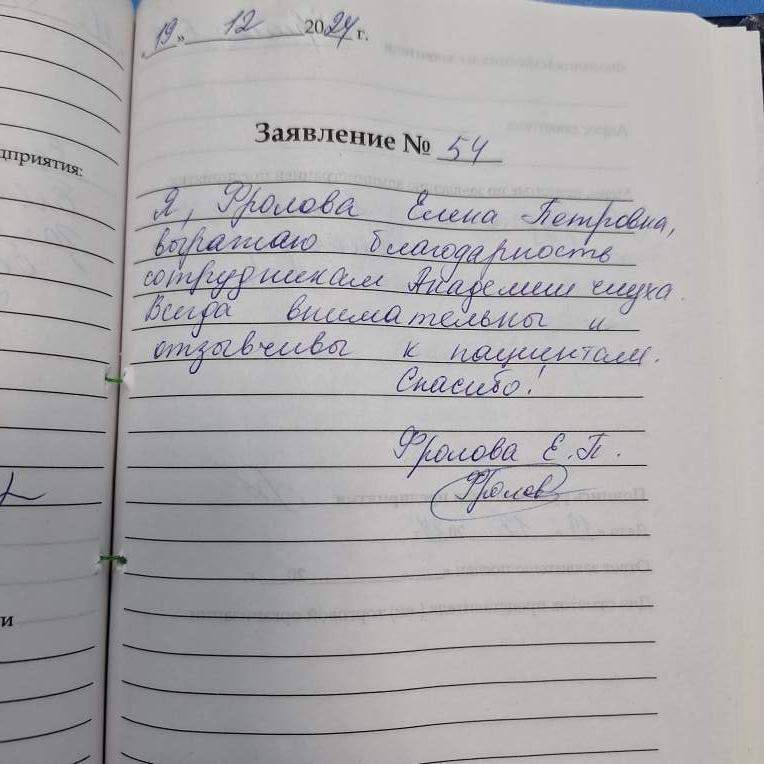 «19» 12 2024 г.
Заявление № 54
дприятия:
Я, Фролова Елена Петровна,
выражаю благодарность
сотрудникам Академии слуха.
Всегда внимательны и
отзывчивы к пациентам.
Спасибо!
Фролова Е.П.
Фролов
и